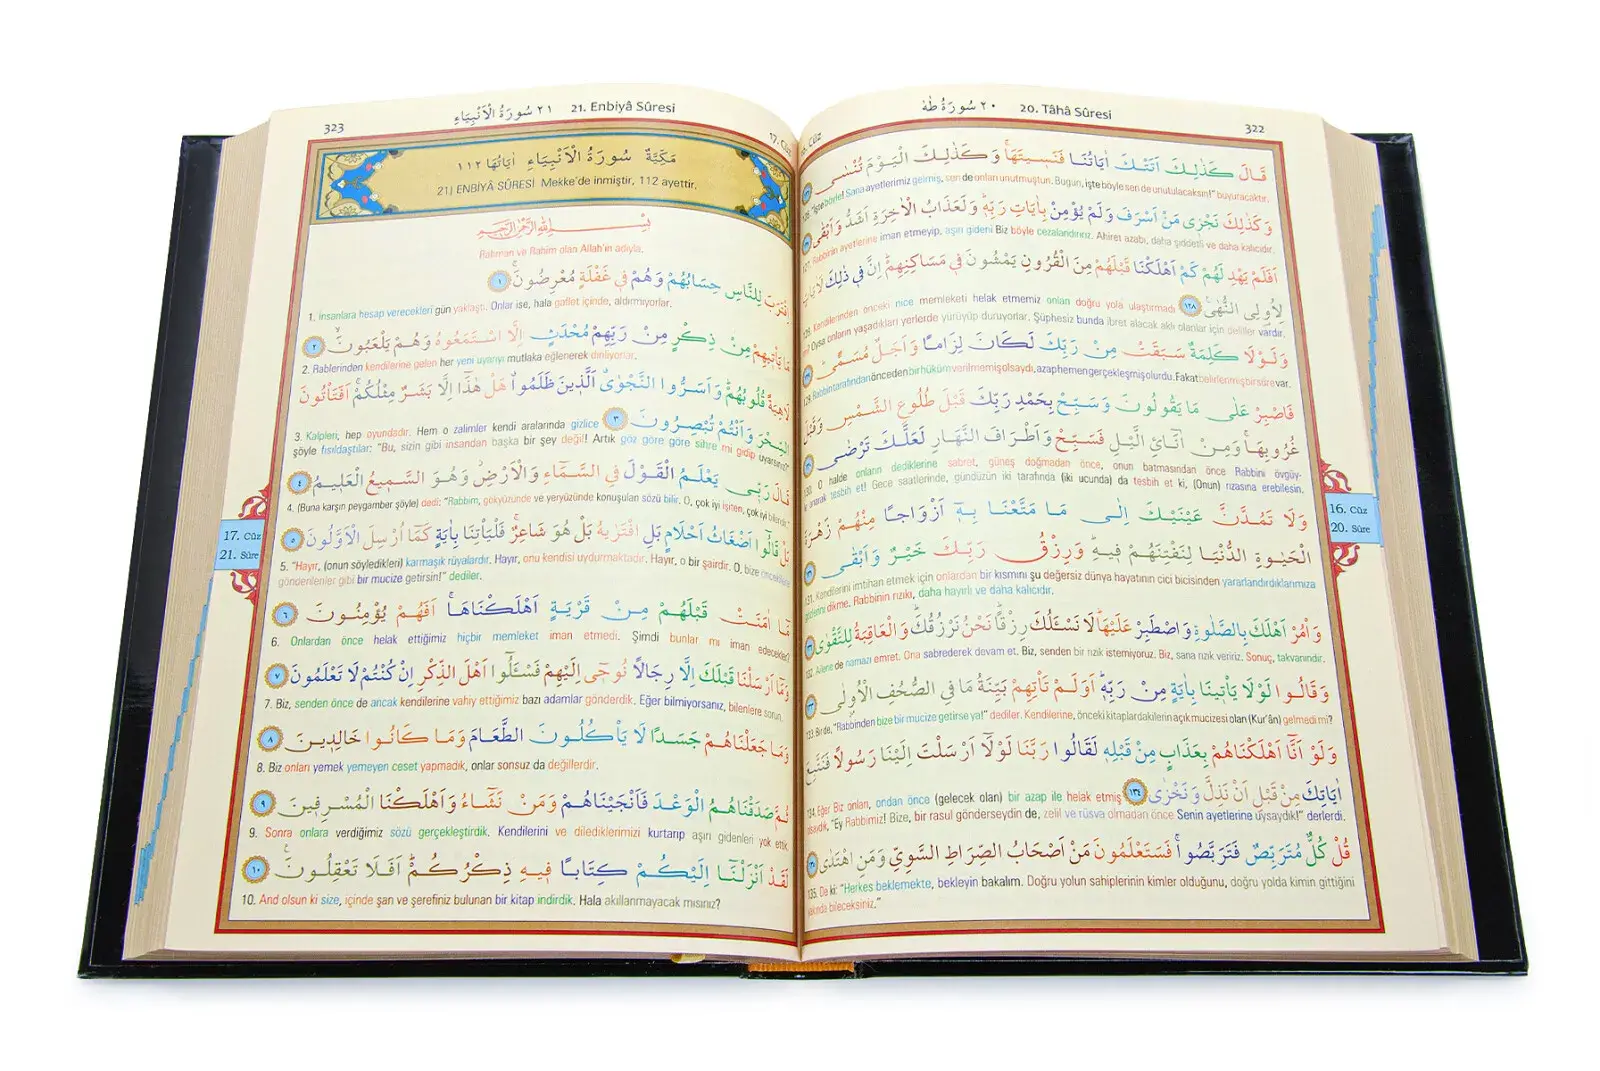 322
٢٠ سُورَةُ طٰهٰ 20. Tâhâ Sûresi
16. Cüz
20. Sûre
قَالَ كَذٰلِكَ اَتَتْكَ اٰيَاتُنَا فَنَسٖيتَهَاۚ وَكَذٰلِكَ الْيَوْمَ تُنْسٰى
"İşte böyle! Sana ayetlerimiz gelmiş, sen de onları unutmuştun. Bugün, işte böyle sen de unutulacaksın!" buyuracaktır.
وَكَذٰلِكَ نَجْزٖى مَنْ اَسْرَفَ وَلَمْ يُؤْمِنْ بِاٰيَاتِ رَبِّهٖۜ وَلَعَذَابُ الْاٰخِرَةِ اَشَدُّ وَاَبْقٰى
Rabbinin ayetlerine iman etmeyip, aşırı gideni Biz böyle cezalandırırız. Ahiret azabı, daha şiddetli ve daha kalıcıdır.
اَفَلَمْ يَهْدِ لَهُمْ كَمْ اَهْلَكْنَا قَبْلَهُمْ مِنَ الْقُرُونِ يَمْشُونَ فٖى مَسَاكِنِهِمْۜ اِنَّ فٖى ذٰلِكَ لَاٰيَاتٍ
لِاُولِى النُّهٰىۚ ١٢٨
Kendilerinden önceki nice memleketi helak etmemiz onları doğru yola ulaştırmadı
mı? Oysa onların yaşadıkları yerlerde yürüyüp duruyorlar. Şüphesiz bunda ibret alacak aklı olanlar için deliller vardır.
وَلَوْلَا كَلِمَةٌ سَبَقَتْ مِنْ رَبِّكَ لَكَانَ لِزَامًا وَاَجَلٌ مُسَمًّىۜ
129. Rabbin tarafından önceden bir hüküm verilmemiş olsaydı, azap hemen gerçekleşmiş olurdu. Fakat belirlenmiş bir süre var.
فَاصْبِرْ عَلٰى مَا يَقُولُونَ وَسَبِّحْ بِحَمْدِ رَبِّكَ قَبْلَ طُلُوعِ الشَّمْسِ وَقَبْلَ
غُرُوبِهَاۚ وَمِنْ اٰنَآئِ الَّيْلِ فَسَبِّحْ وَاَطْرَافَ النَّهَارِ لَعَلَّكَ تَرْضٰى
130. O halde onların dediklerine sabret, güneş doğmadan önce, onun batmasından önce Rabbini övgüy-
le anarak tesbih et! Gece saatlerinde, gündüzün iki tarafında (iki ucunda) da tesbih et ki, (Onun) rızasına erebilesin.
وَلَا تَمُدَّنَّ عَيْنَيْكَ اِلٰى مَا مَتَّعْنَا بِهٖٓ اَزْوَاجًا مِنْهُمْ زَهْرَةَ
الْحَيٰوةِ الدُّنْيَا لِنَفْتِنَهُمْ فٖيهِۜ وَرِزْقُ رَبِّكَ خَيْرٌ وَاَبْقٰى
131. Kendilerini imtihan etmek için onlardan bir kısmını şu değersiz dünya hayatının cici bicisinden yararlandırdıklarımıza
gözlerini dikme. Rabbinin rızıkı, daha hayırlı ve daha kalıcıdır.
وَاْمُرْ اَهْلَكَ بِالصَّلٰوةِ وَاصْطَبِرْ عَلَيْهَاۜ لَا نَسْـَٔلُكَ رِزْقًاۜ نَحْنُ نَرْزُقُكَۜ وَالْعَاقِبَةُ لِلتَّقْوٰى
Ailene de namazı emret. Ona sabrederek devam et. Biz, senden bir rızık istemiyoruz. Biz, sana rızık veririz. Sonuç, takvanındır.
وَقَالُوا لَوْلَا يَاْتٖينَا بِاٰيَةٍ مِنْ رَبِّهٖۜ اَوَلَمْ تَاْتِهِمْ بَيِّنَةُ مَا فِى الصُّحُفِ الْاُولٰى
133. Bir de, "Rabbinden bize bir mucize getirse ya!" dediler. Kendilerine, önceki kitaplardakilerin açık mucizesi olan (Kur'ân) gelmedi mi?
وَلَوْ اَنَّٓا اَهْلَكْنَاهُمْ بِعَذَابٍ مِنْ قَبْلِهٖ لَقَالُوا رَبَّنَا لَوْلَٓا اَرْسَلْتَ اِلَيْنَا رَسُولًا فَنَتَّبِعَ
اٰيَاتِكَ مِنْ قَبْلِ اَنْ نَذِلَّ وَنَخْزٰى ١٣٤
134. Eğer Biz onları, ondan önce (gelecek olan) bir azap ile helak etmiş
olsaydık, "Ey Rabbimiz! Bize, bir rasul gönderseydin de, zelil ve rüsva olmadan önce Senin ayetlerine uysaydık!" derlerdi.
قُلْ كُلٌّ مُتَرَبِّصٌ فَتَرَبَّصُواۚ فَسَتَعْلَمُونَ مَنْ اَصْحَابُ الصِّرَاطِ السَّوِيِّ وَمَنِ اهْتَدٰى
135. De ki: "Herkes beklemekte, bekleyin bakalım. Doğru yolun sahiplerinin kimler olduğunu, doğru yolda kimin gittiğini
yakında bileceksiniz."
323
٢١ سُورَةُ الْاَنْبِيَاءِ 21. Enbiyâ Sûresi
17. Cüz
17. Cüz
21. Sûre
مَكِّيَّةٌ سُورَةُ الْاَنْبِيَاءِ اٰيَاتُهَا ١١٢
21) ENBİYÂ SÛRESİ Mekke'de inmiştir, 112 ayettir.
بِسْمِ اللّٰهِ الرَّحْمٰنِ الرَّحٖيمِ
Rahman ve Rahim olan Allah'ın adıyla.
اِقْتَرَبَ لِلنَّاسِ حِسَابُهُمْ وَهُمْ فٖى غَفْلَةٍ مُعْرِضُونَۚ ١
1. İnsanlara hesap verecekleri gün yaklaştı. Onlar ise, hala gaflet içinde, aldırmıyorlar.
مَا يَاْتٖيهِمْ مِنْ ذِكْرٍ مِنْ رَبِّهِمْ مُحْدَثٍ اِلَّا اسْتَمَعُوهُ وَهُمْ يَلْعَبُونَۙ ٢
2. Rablerinden kendilerine gelen her yeni uyarıyı mutlaka eğlenerek dinliyorlar.
لَاهِيَةً قُلُوبُهُمْۜ وَاَسَرُّوا النَّجْوٰىۗ اَلَّذٖينَ ظَلَمُوا هَلْ هٰذَٓا اِلَّا بَشَرٌ مِثْلُكُمْۚ اَفَتَاْتُونَ
السِّحْرَ وَاَنْتُمْ تُبْصِرُونَ ٣
3. Kalpleri, hep oyundadır. Hem o zalimler kendi aralarında gizlice
şöyle fısıldaştılar: "Bu, sizin gibi insandan başka bir şey değil! Artık göz göre göre sihre mi gidip uyarsınız?"
قَالَ رَبّٖى يَعْلَمُ الْقَوْلَ فِى السَّمَٓاءِ وَالْاَرْضِۘ وَهُوَ السَّمٖيعُ الْعَلٖيمُ ٤
4. (Buna karşın peygamber şöyle) dedi: "Rabbim, gökyüzünde ve yeryüzünde konuşulan sözü bilir. O, çok iyi işiten, çok iyi bilendir."
بَلْ قَالُٓوا اَضْغَاثُ اَحْلَامٍ بَلِ افْتَرٰيهُ بَلْ هُوَ شَاعِرٌۚ فَلْيَاْتِنَا بِاٰيَةٍ كَمَٓا اُرْسِلَ الْاَوَّلُونَ ٥
5. "Hayır, (onun söyledikleri) karmaşık rüyalardır. Hayır, onu kendisi uydurmaktadır. Hayır, o bir şairdir. O, bize öncekilere
gönderilenler gibi bir mucize getirsin!" dediler.
مَٓا اٰمَنَتْ قَبْلَهُمْ مِنْ قَرْيَةٍ اَهْلَكْنَاهَاۚ اَفَهُمْ يُؤْمِنُونَ ٦
6. Onlardan önce helak ettiğimiz hiçbir memleket iman etmedi. Şimdi bunlar mı iman edecekler?
وَمَٓا اَرْسَلْنَا قَبْلَكَ اِلَّا رِجَالًا نُوحٖٓى اِلَيْهِمْ فَسْـَٔلُٓوا اَهْلَ الذِّكْرِ اِنْ كُنْتُمْ لَا تَعْلَمُونَ ٧
7. Biz, senden önce de ancak kendilerine vahiy ettiğimiz bazı adamlar gönderdik. Eğer bilmiyorsanız, bilenlere sorun.
وَمَا جَعَلْنَاهُمْ جَسَدًا لَا يَاْكُلُونَ الطَّعَامَ وَمَا كَانُوا خَالِدٖينَ ٨
8. Biz onları yemek yemeyen ceset yapmadık, onlar sonsuz da değillerdir.
ثُمَّ صَدَقْنَاهُمُ الْوَعْدَ فَاَنْجَيْنَاهُمْ وَمَنْ نَشَٓاءُ وَاَهْلَكْنَا الْمُسْرِفٖينَ ٩
9. Sonra onlara verdiğimiz sözü gerçekleştirdik. Kendilerini ve dilediklerimizi kurtarıp aşırı gidenleri yok ettik.
لَقَدْ اَنْزَلْنَٓا اِلَيْكُمْ كِتَابًا فٖيهِ ذِكْرُكُمْۜ اَفَلَا تَعْقِلُونَۚ ١٠
10. And olsun ki size, içinde şan ve şerefiniz bulunan bir kitap indirdik. Hala akıllanmayacak mısınız?